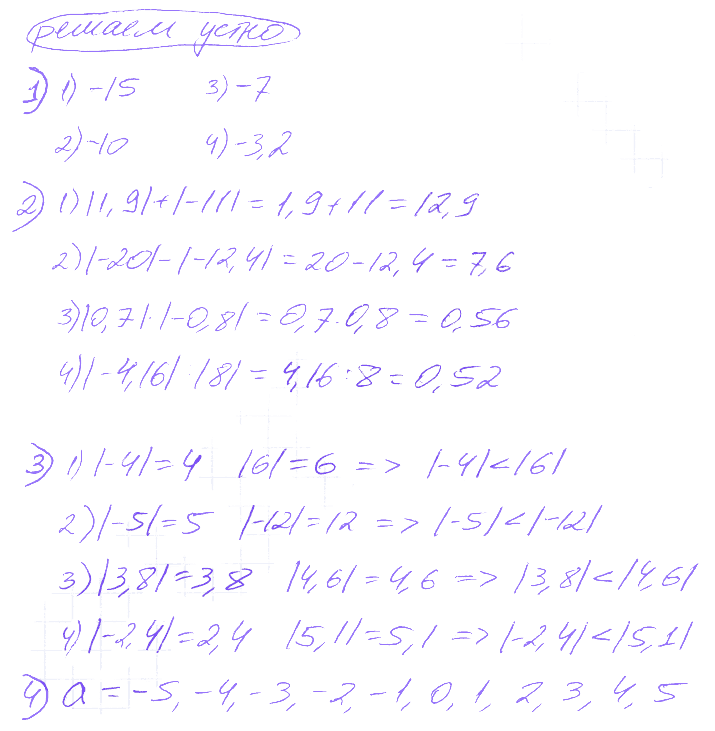 решаем устно
1) 1) -15 3) -7
2) -10 4) -3,2
2) 1) |1,9|+|-11| = 1,9+11 = 12,9
2) |-20|-|-12,4| = 20-12,4 = 7,6
3) |0,7|·|-0,8| = 0,7·0,8 = 0,56
4) |-4,16|·|8| = 4,16:8 = 0,52
3) 1) |-4|=4 |6|=6 => |-4|<|6|
2) |-5|=5 |-12|=12 => |-5|<|-12|
3) |3,8|=3,8 |4,6|=4,6 => |3,8|<|4,6|
4) |-2,4|=2,4 |5,1|=5,1 => |-2,4|<|5,1|
4) a = -5, -4, -3, -2, -1, 0, 1, 2, 3, 4, 5